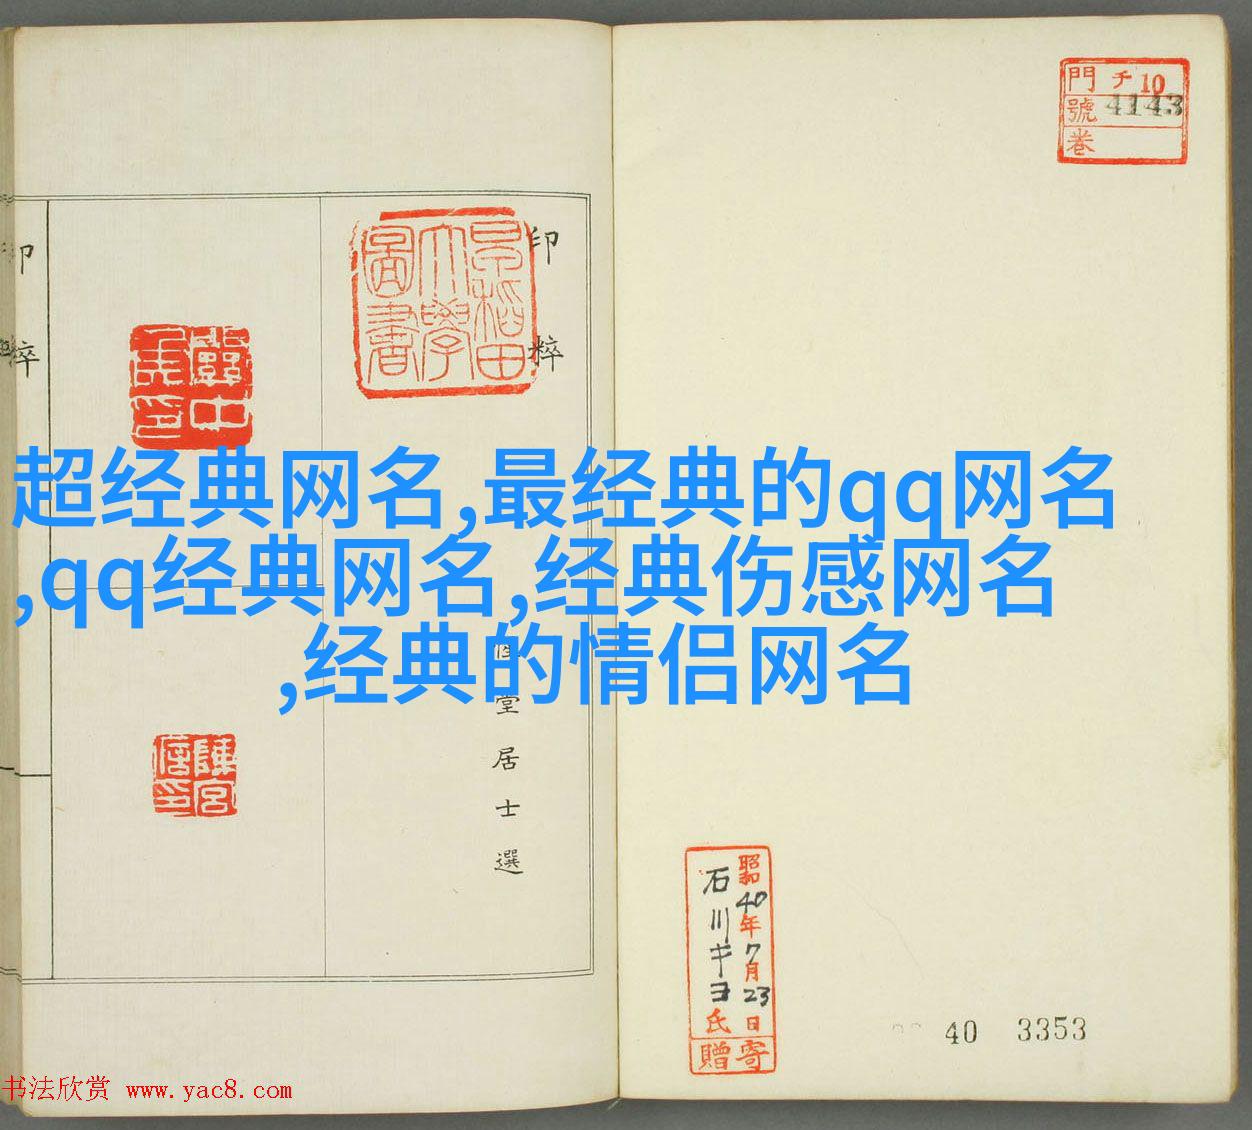 門 チ 10
號 4143
卷
印粹
早稻田大學圖書
印粹
超经典网名,最经典的qq网名
,qq经典网名,经典伤感网名
,经典的情侣网名
堂居士選
陳宮信印
昭和40年7月23日
石川キヨ氏
寄贈
40 3353
书法欣赏 www.yac8.com